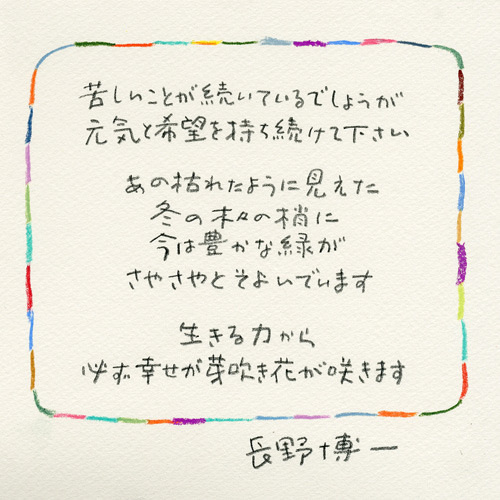 苦しいことが続いているでしょうが
元気と希望を持ち続けて下さい
あの枯れたように見えた
冬の木々の梢に
今は豊かな緑が
さやさやとそよいでいます
生きる力から
必ず幸せが芽吹き花が咲きます
長野博一